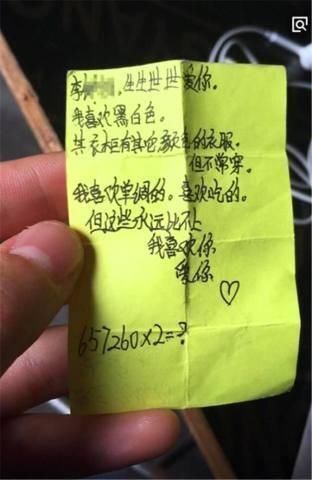 李 生生世世爱你。
我喜欢黑白色。
共衣柜有其它颜色的衣服。
但不常穿。
我喜欢单调的。喜欢吃的。
但这些永远比不上
我喜欢你
爱你
♡
657260×2=?